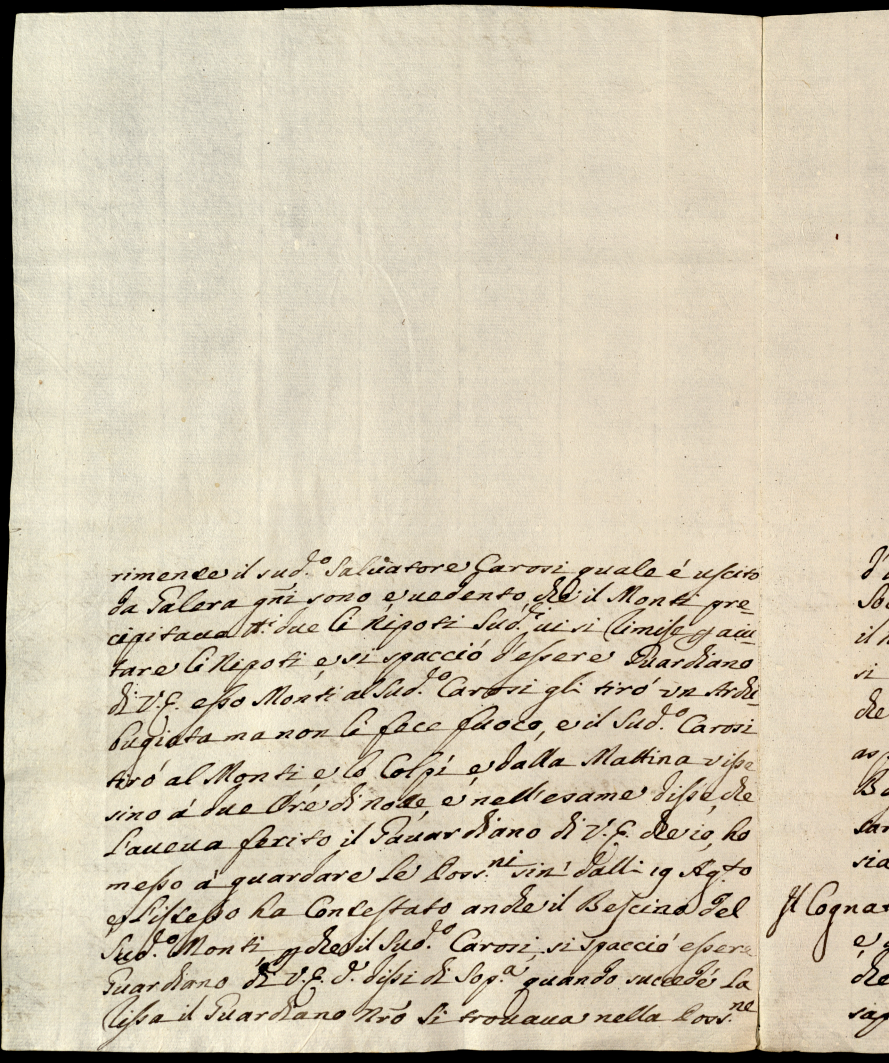 rimente il sud.º Salvatore Carosi quale é uscito
da Galera gñi sono e uedento, che il Monti pre=
cipitaua due li Riposi Sud.ti ui si p aiu=
tare li Riposi e si spacció d'essere Guardiano
di V.E. esso Monti al Sud.º Carosi gli tiró un Archi=
bugiata ma non li fece fuoco, e il Sud.º Carosi
tiró al Monti e lo Colpí e dalla Mattina visse
sino á due Ore di notte e nell'esame disse che
L'aueua ferito il Guardiano di V.E. che io, ho
messo á guardare le Poss.ni sin' dalli 19 Ag.to
e l'istesso ha Contestato anche il Bescino del
Sud.º Monti p che il Sud.º Carosi, si spacció essere
Guardiano di V.E. dissi di Sop.a quando succedé La
Rissa il Guardiano Nrõ si trouaua nella Poss.ne
d'
So
il
si
che
as
B
sia
Il Cogna
e
che
sap